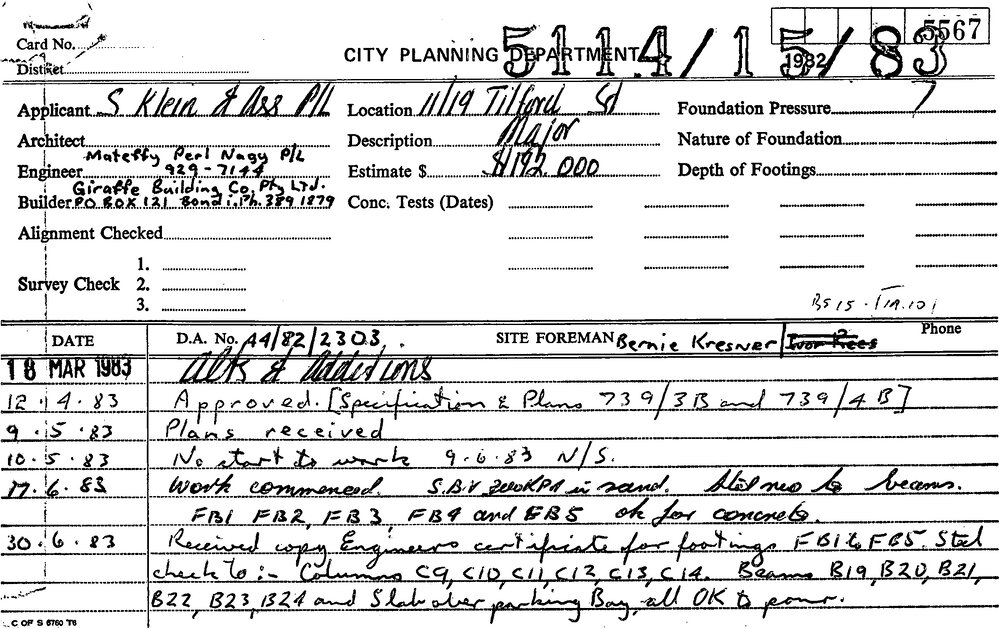 5567
Card No.
CITY PLANNING DEPARTMENT 511.4/15/83
1982
District
Applicant S Klein & Ass P/L Location 11/19 Tilford St Foundation Pressure
Architect Description Major Nature of Foundation
Mateffy Perl Nagy P/L
Engineer 929-7144 Estimate $ $192.000 Depth of Footings
Giraffe Building Co. Pty Ltd.
Builder PO BOX 121 Bondi. Ph. 389 1879 Conc. Tests (Dates)
Alignment Checked
1.
Survey Check 2.
3.
DATE D.A. No. 44/82/2303. SITE FOREMAN Bernie Kresner Phone
18 MAR 1983 Alts & Additions
12.4.83 Approved. [Specification & Plans 739/3B and 739/4B]
9.5.83 Plans received
10.5.83 No start to work 9.6.83 N/S.
17.6.83 Work commenced. S.B.V 200KPA in sand. Steel to beams.
FB1 FB2, FB3, FB4 and FB5 ok for concrete.
30.6.83 Received copy Engineers certificate for footings FB1 to FB5. Steel
check to :- Columns C9, C10, C11, C12, C13, C14. Beams B19, B20, B21,
B22, B23, B24 and Slab over parking Bay, all OK to pour.
C OF S 6760 T6